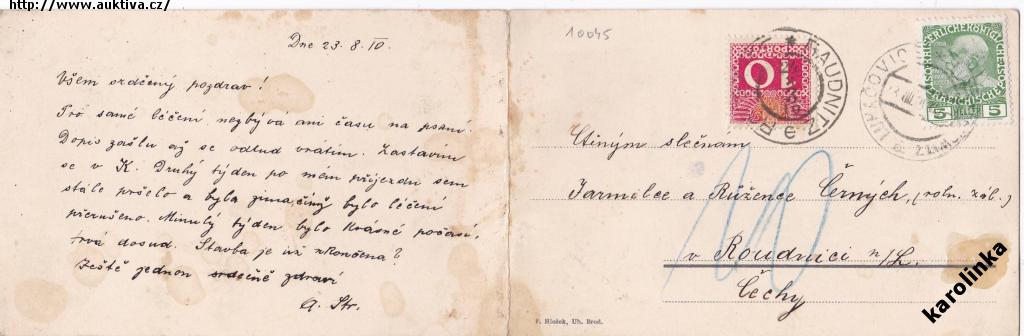 http://www.auktiva.cz/
Dne 23. 8. 10.
Všem srdečný pozdrav!
Pro samé léčení nezbývá ani času na psaní.
Dopis zašlu až se odtud vrátím. Zastavím
se v K. Druhý týden po mém příjezdu sem
stále pršelo a byla zima čímž bylo léčení
přerušeno. Minulý týden bylo krásné počasí,
trvá dosud. Stavba je už skončena?
Ještě jednou srdečně zdraví
A. Str.
10045
PORTO
10
RAUDNITZ
5
5
Ctěným slečnám
Jarmilce a Růžence Černých, (roln. zál.)
v Roudnici n/L.
Čechy
10
F. Hložek, Uh. Brod.
karolinka